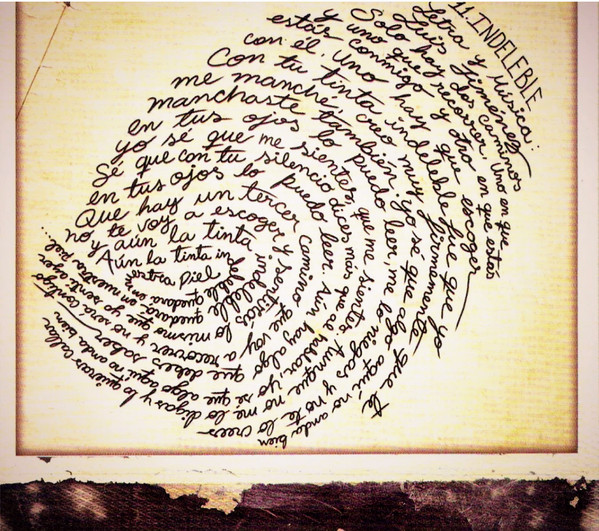 11. INDELEBLE
Letra y Música:
Luis Jiménez
Solo hay dos caminos. Uno en que
estás conmigo y otro en que estás
con él. Uno hay que escoger
y uno que recorrer.
Con tu tinta indeleble fue que yo
me manché, creo muy firmemente que te
manchaste también. Yo sé que algo aquí no anda bien
en tus ojos lo puedo leer, me lo niegas y no te lo crees
yo sé que me sientes, que me sientes Aunque no me lo digas y lo quieras callar
Sé que con tu silencio dices más que al hablar. yo sé que algo aquí no anda bien
en tus ojos lo puedo leer. Aún hay algo que debes saber
Que hay un tercer camino que voy a recorrer y no será contigo
no te voy a escoger y sentirás lo mismo que yo sentí ayer
y aún la tinta indeleble quedará en nuestra piel...
Aún la tinta indeleble quedará en
nuestra piel